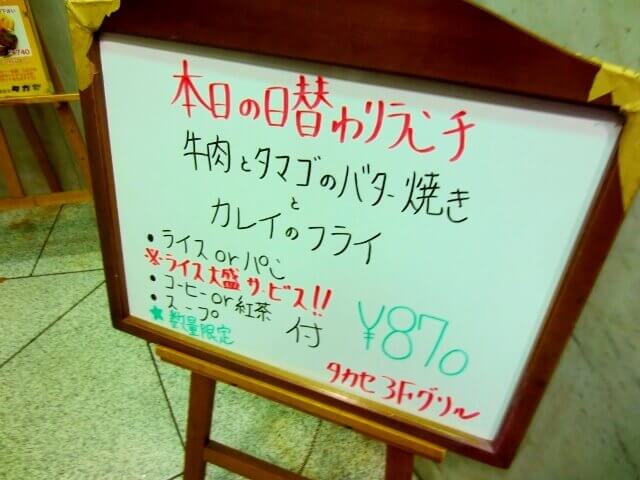 本日の日替わりランチ
牛肉とタマゴのバター焼き
と
カレイのフライ
・ライスorパン
※ライス大盛サービス!!
・コーヒーor紅茶
・スープ 付
★数量限定
¥870
タカセ3Fグリル